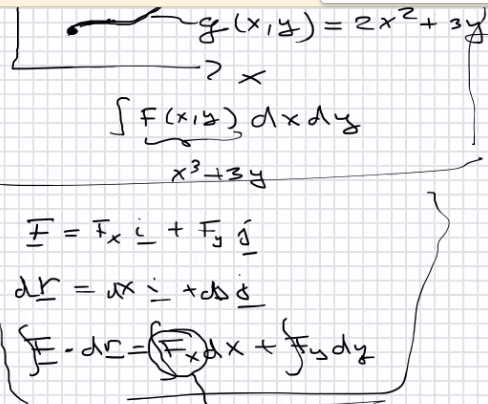 g(x,y) = 2x² + 3y
x
∫ F(x,y) dx dy
x³ + 3y
F = Fₓ i + Fᵧ j
dr = dx i + ds j
∫ F - dr = ∫ Fₓ dx + ∫ Fᵧ dy